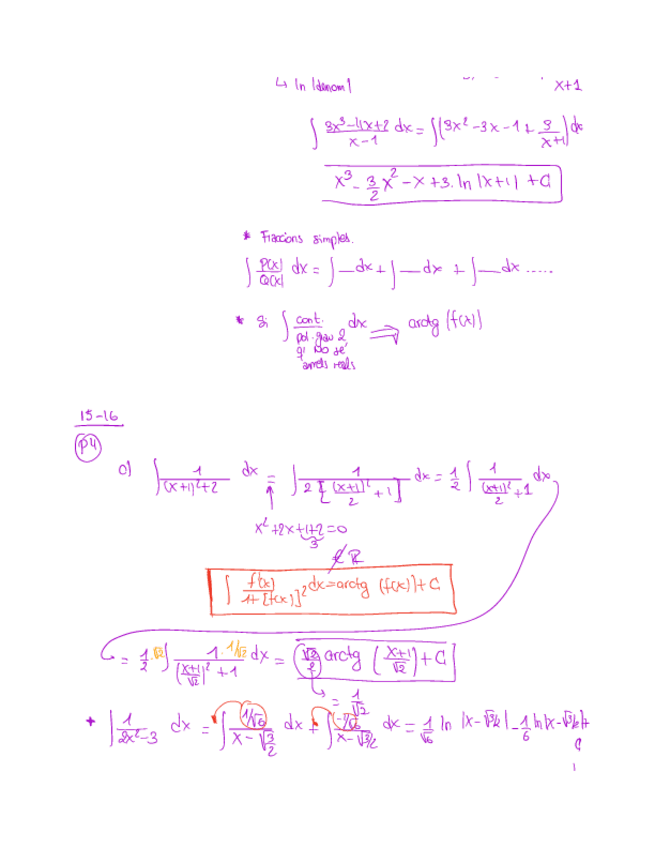 ↳ ln |denom|
x+1
∫ 3x³-4x+2 / x-1 dx = ∫(3x² -3x -1 + 3/x+1) dx
x³ - 3/2 x² - x + 3. ln |x+1| + C
* Fraccions simples.
∫ P(x)/Q(x) dx = ∫ — dx + ∫ — dx + ∫ — dx .....
* Si ∫ cont. / pol. grau 2 q' no té arrels reals dx ⟹ arctg (f(x))
15-16
P4
c) ∫ 1/(x+1)²+2 dx = ∫ 1 / 2[(x+1)²/2 + 1] dx = 1/2 ∫ 1 / (x+1)²/2 + 1 dx
x² + 2x + 1+2 = 0
3
∉ ℝ
∫ f'(x) / 1+[f(x)]² dx = arctg (f(x)) + C
= 1/2 · √2 ∫ 1 · 1/√2 / (x+1/√2)² + 1 dx = √2/2 arctg (x+1/√2) + C
= 1/√2
+ ∫ 1/2x²-3 dx = ∫ 1/√6 / x - √3/2 dx + ∫ -1/√6 / x - √3/2 dx = 1/√6 ln |x-√3/2| - 1/6 ln |x-√3/2| +
C